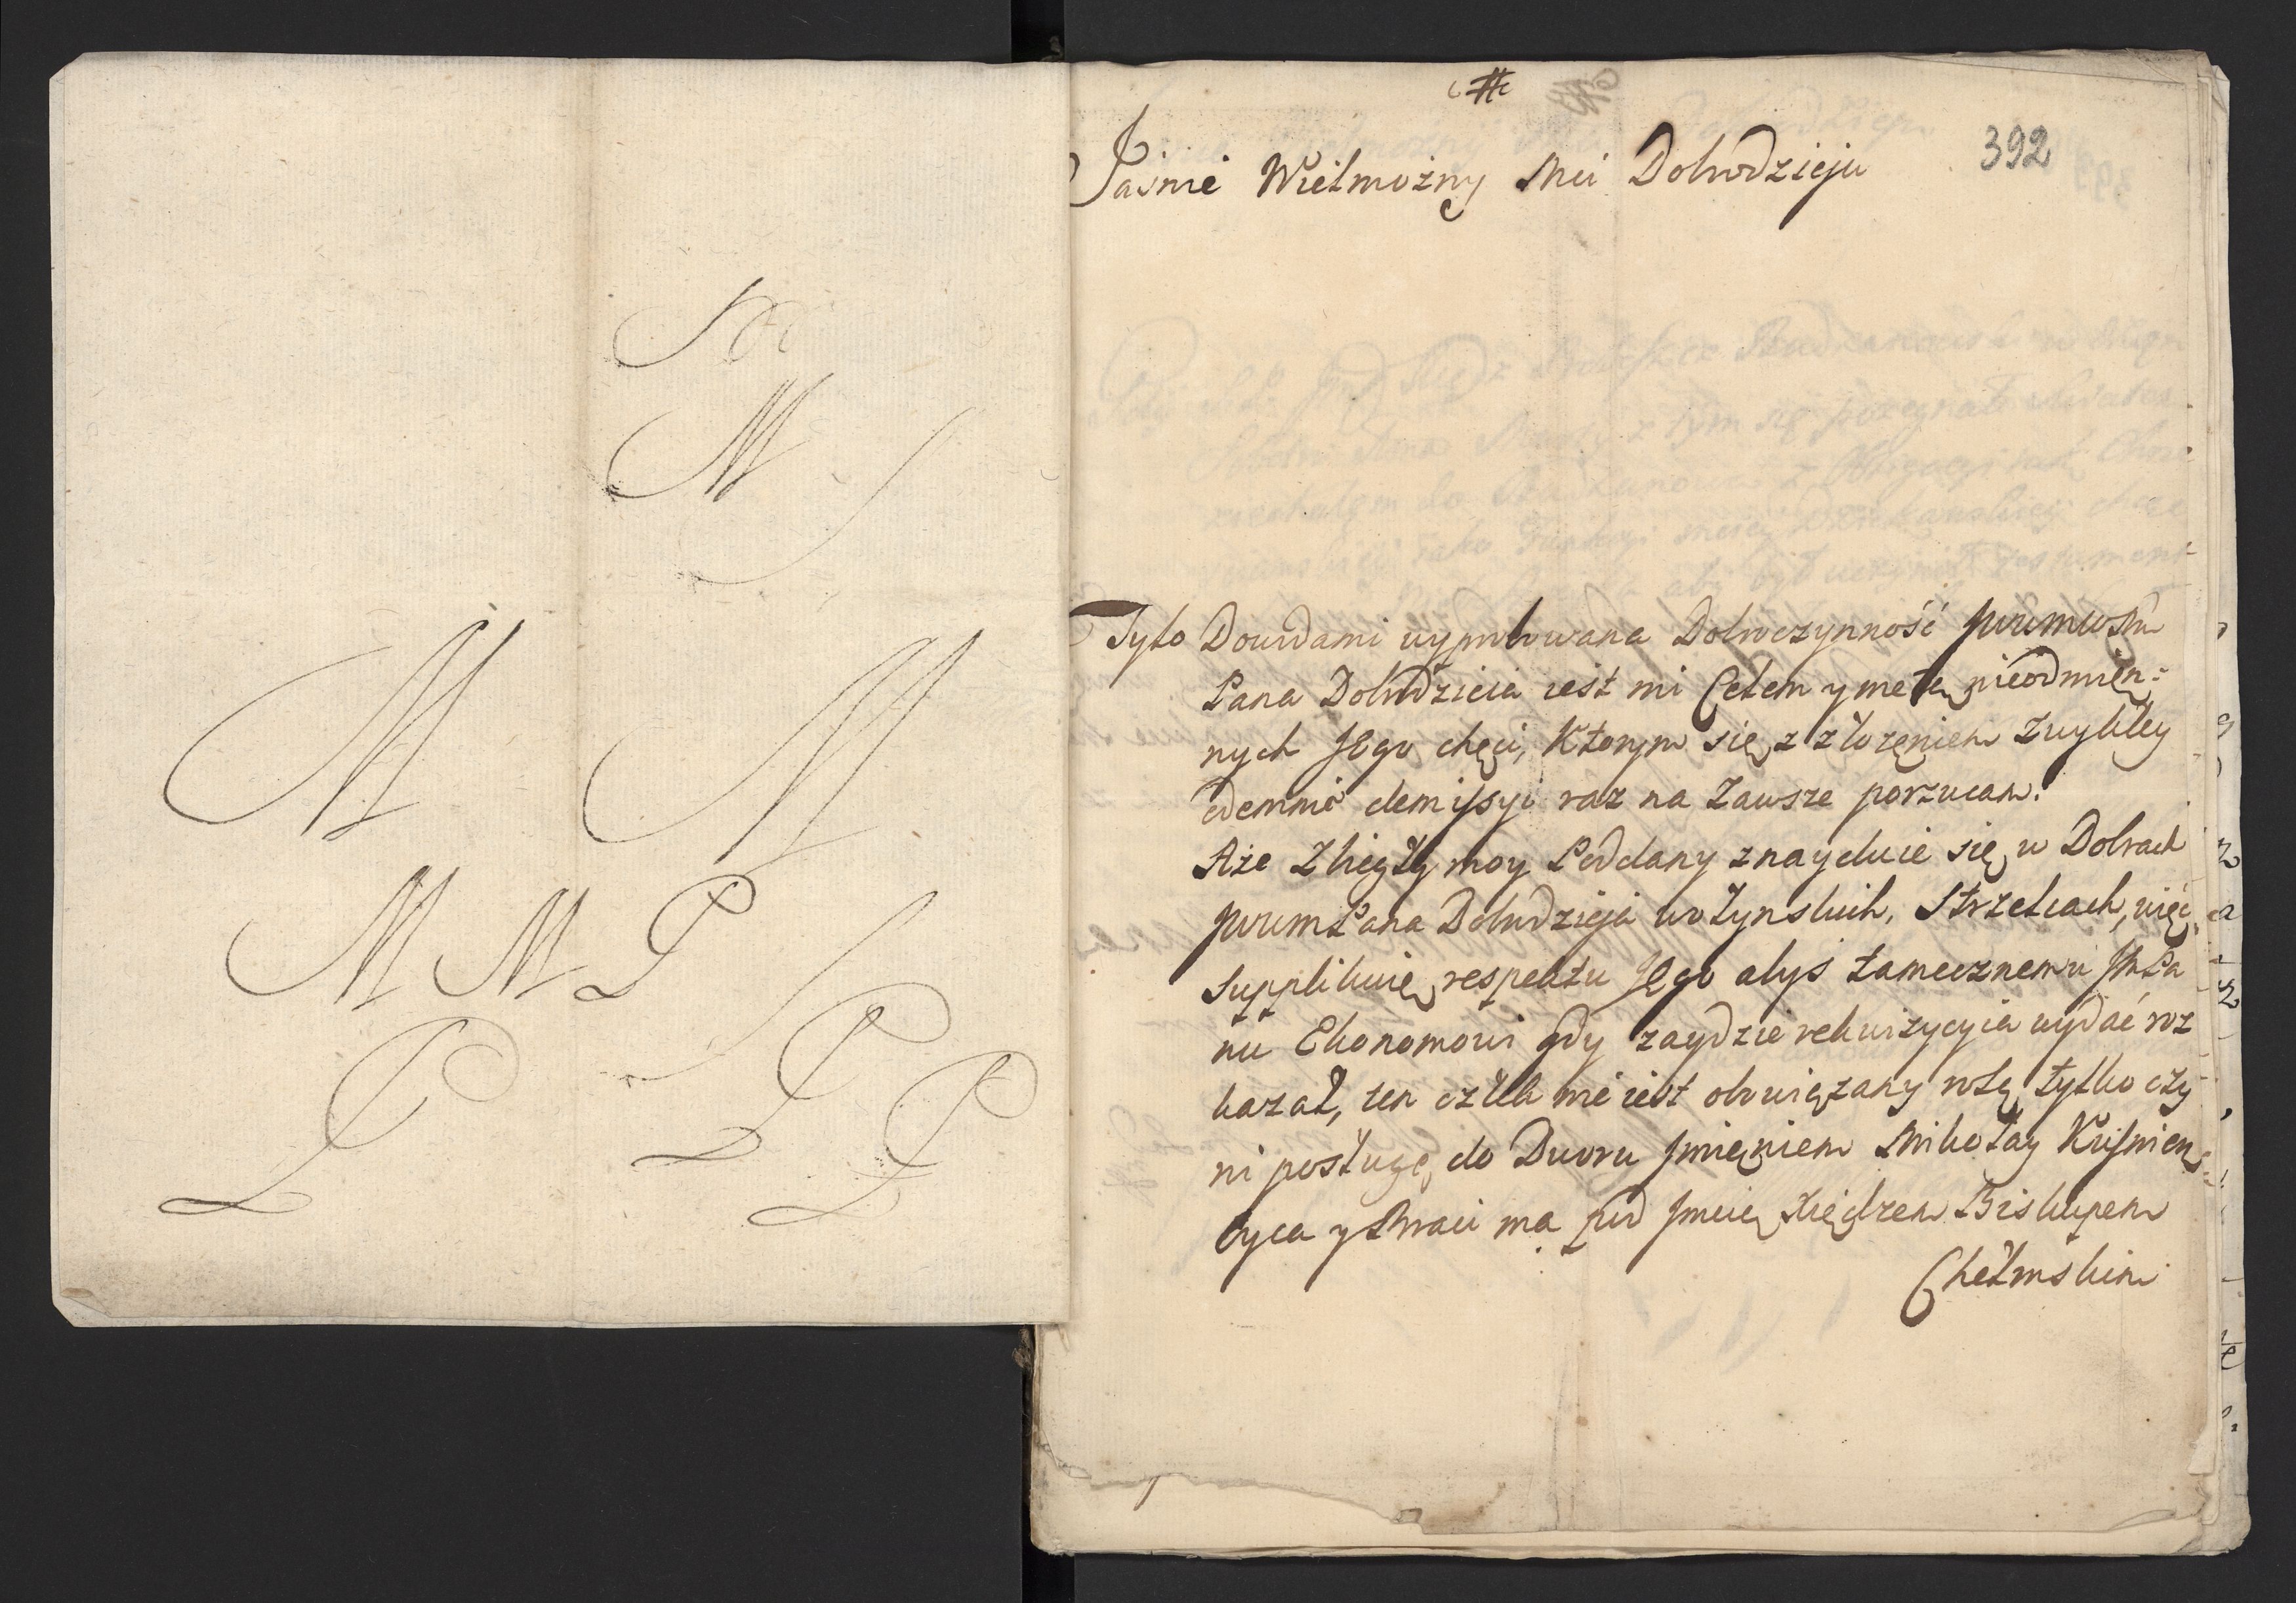 M
M M
M M P
P P P
392
Jaśnie Wielmożny Mći Dobrodzieju
Tylo Dowodami wyprobowana Dobroczynność JWWMWMM
Pana Dobrodzieia iest mi Celem y metą nieodmięn:
nych JEgo chęci, Ktorym się z złożęniem Zwykłey
odemnie demissyi raz na Zawsze porzucam.
Aże Zbiegły moy Poddany znayduie się w Dobrach
JWWMPana Dobrodzieja wołynskich, Strzelcach, więc
supplikuię respektu JEgo abyś tamecznemu JmPa
nu Ekonomowi gdy zaydzie rekwizycyia wydać roz
kazał, ten człek nie iest obowiązany rolę tylko czy
ni posługę do Dworu Jmięniem Mikołay Kuśnien
Oyca y Braci ma pod Jmcią Xiędzem Biskupem
Chełmskim